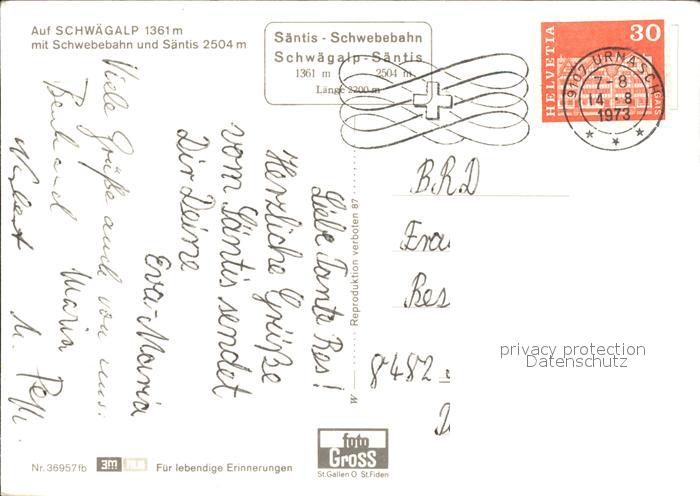 Auf SCHWÄGALP 1361 m
mit Schwebebahn und Säntis 2504 m
Säntis - Schwebebahn
Schwägalp - Säntis
1361 m 2504 m
Länge 2200 m
HELVETIA
30
9107 URNÄSCH
7-8
14-8
1973
Liebe Tante Res!
Herzliche Grüße
vom Säntis sendet
Dir Deine
Eva-Maria
Viele Grüße auch von uns:
Maria
BRD
Frau
Res
8482
Reproduktion verboten 87
privacy protection
Datenschutz
Nr. 36957fb
3M
Für lebendige Erinnerungen
foto
GROSS
St.Gallen O St.Fiden